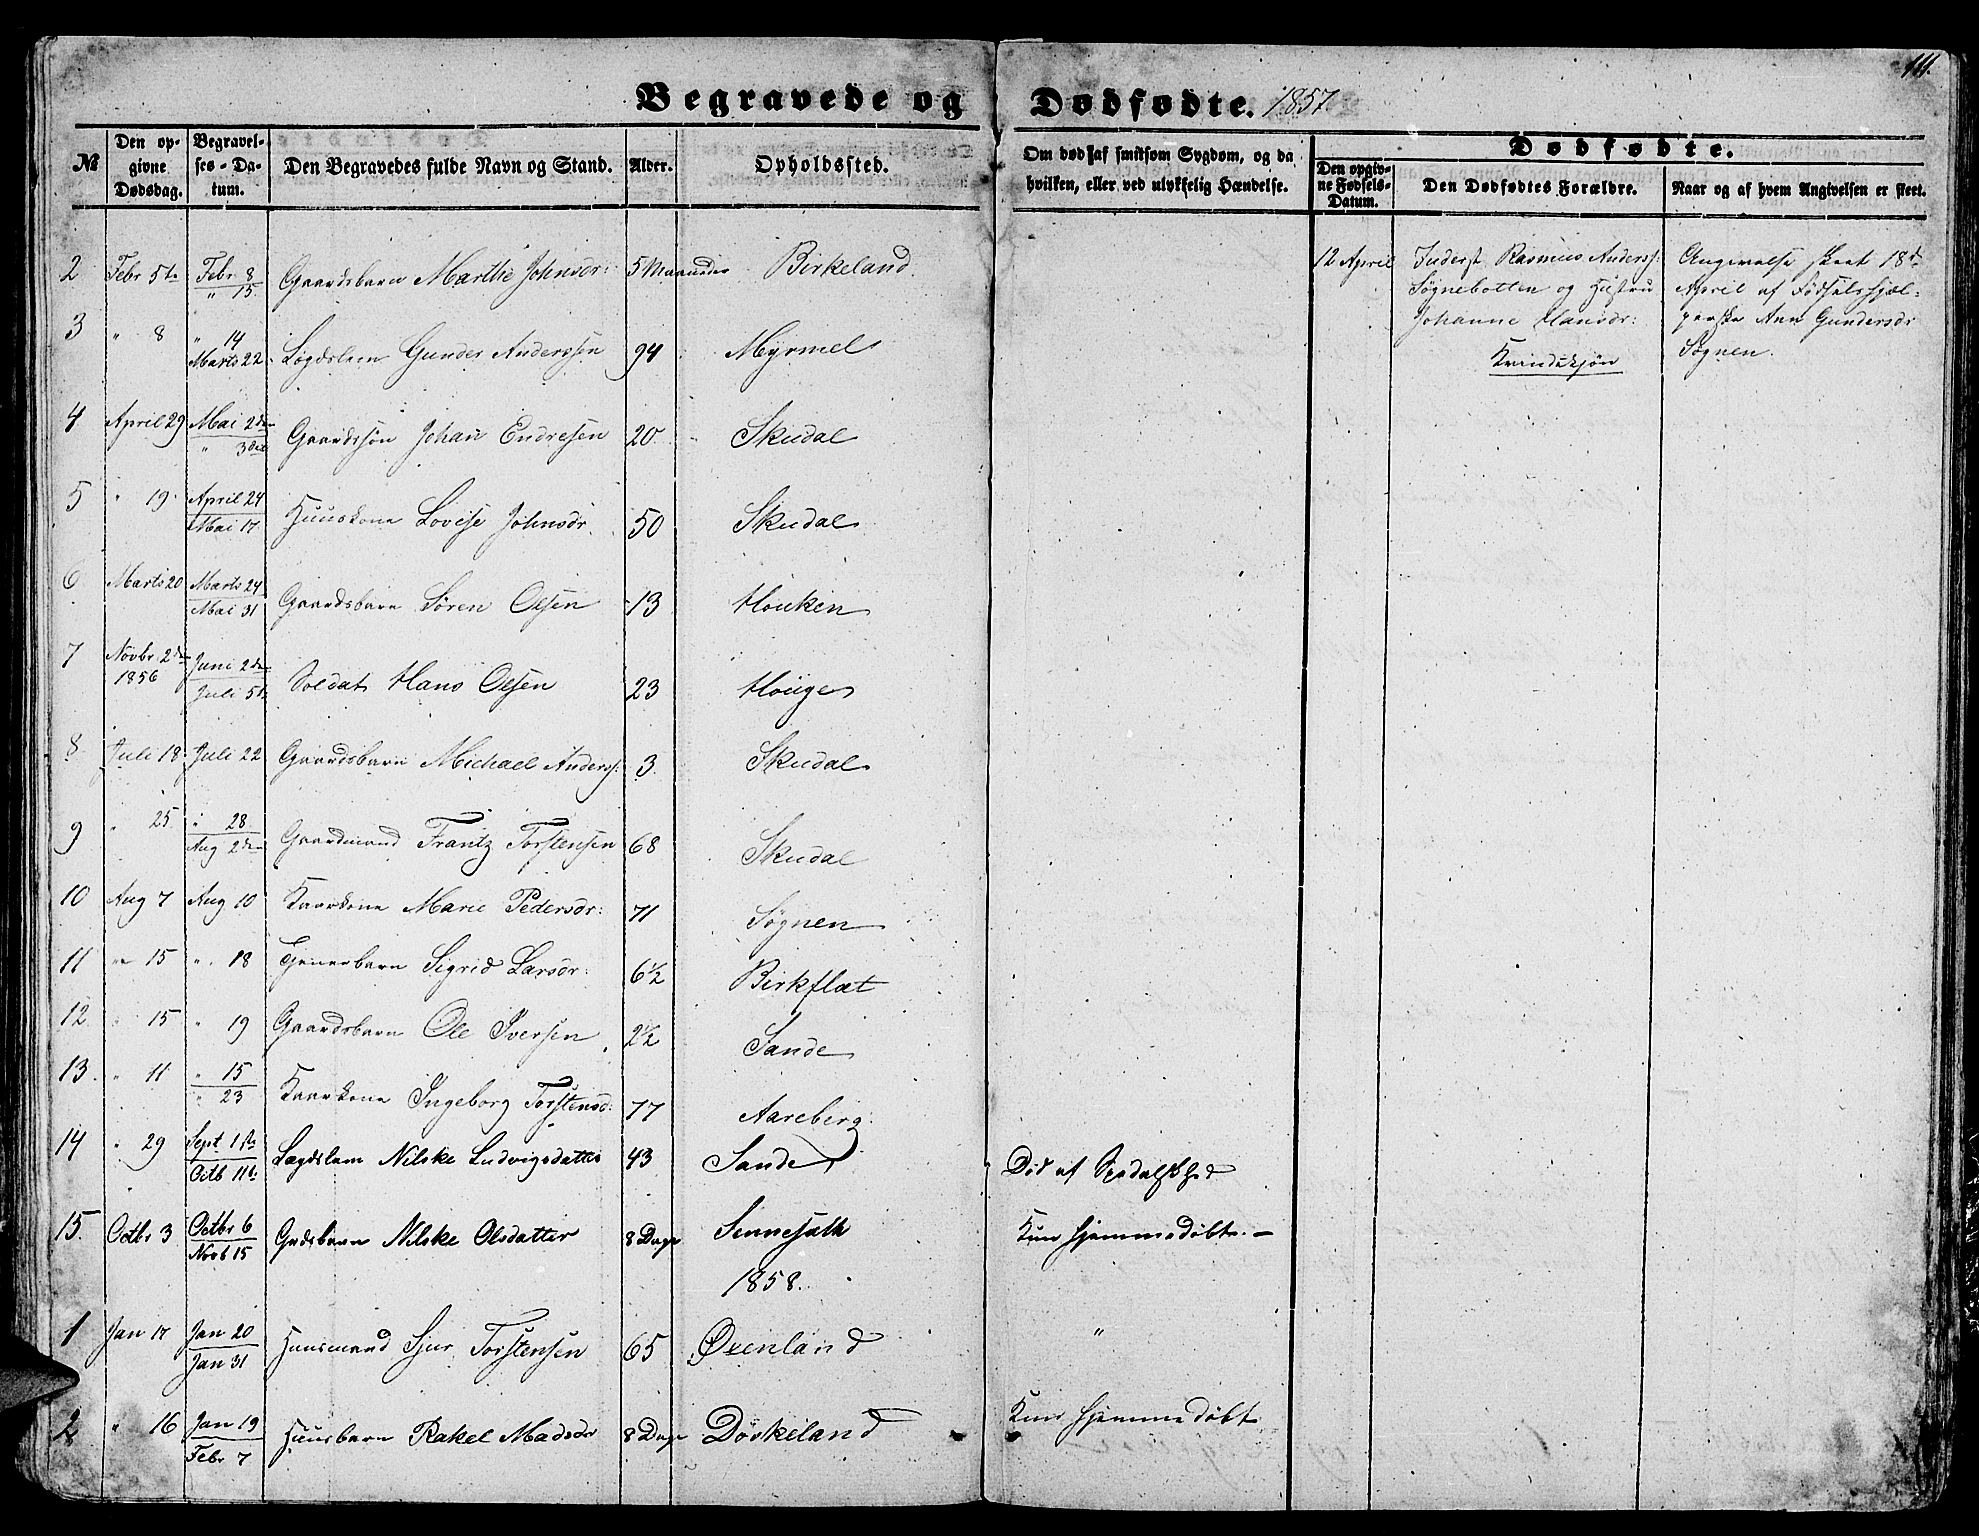 111.
Begravede og Dødfødte. 1857
№ Den opgivne Dødsdag. Begravelses-Datum. Den Begravedes fulde Navn og Stand. Alder. Opholdssted. Om død af smitsom Sygdom, og da hvilken, eller ved ulykkelig Hændelse. Dødfødte. Den opgivne Fødsels-Datum. Den Dødfødtes Forældre. Naar og af hvem Angivelsen er skeet.
2 Febr 5te Febr 8 " 15 Gaardsbarn Marthe Johnsdr: 5 Maaneder Birkeland
12 April Inderst Rasmus Anderss:
Søgnebotten og Hustru
Johanne Hansdr:
Kvindekjøn
Angivelse skeet 18de
April af Fødselshjæl-
perske Ane Gundersdr
Søgnen.
3 " 8 " 14 Marts 22 Lægdslem Gunder Anderssen 94 Myrmel
4 April 29 Mai 2den " 3die Gaardssøn Johan Endresen 20 Skudal
5 " 19 April 24 Mai 17 Huuskone Lovise Johnsdr. 50 Skudal
6 Marts 20 Marts 24 Mai 31 Gaardsbarn Søren Olsen 13 Houken
7 Novbr 2den 1856 Juni 2den Juli 5te Soldat Hans Olsen 23 Houge
8 Juli 18 Juli 22 Gaardsbarn Michael Anderss: 3 Skudal
9 " 25 " 28 Aug 2den Gaardmand Frantz Torstensen 68 Skudal
10 Aug 7 Aug 10 Kaarkone Marie Pedersdr: 71 Søgnen
11 " 15 " 18 Sigrid Larsdr: 6½ Birkflat
12 " 15 " 19 Gaardsbarn Ole Iversen 2½ Sande
13 " 11 " 15 " 23 Kaarkone Ingeborg Torstensd: 77 Aareberg
14 " 29 Sept. 1ste Octb 11te Lægdslem Nilske Ludvigsdatter 43 Sande Død af Spedalskhed
15. Octbr 3 Octbr 6 Novb 15 Gdsbarn Nilske Olsdatter 8 Dage Kun hjemmedøbt. -
1858.
1 Jan 17 Jan 20 Jan 31 Huusmand Sjur Torstensen 65 Øxenland "
2 " 16 Jan 19 Febr 7 Huusbarn Rakel Madsdr 8 Dage Døskeland Kun hjemmedøbt